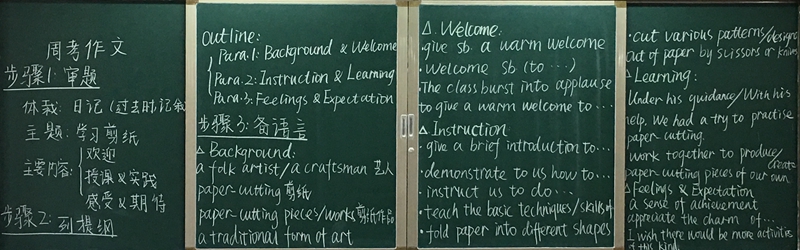 周考作文
步骤1: 审题
体裁: 日记 (过去时,记叙
主题: 学习剪纸
主要内容: 欢迎
授课 & 实践
感受 & 期待
步骤2: 列提纲
Outline:
Para.1: Background & Welcome
Para.2: Instruction & Learning
Para.3: Feelings & Expectation
步骤3: 备语言
△ Background:
a folk artist/a craftsman 艺人
paper-cutting 剪纸
paper-cutting pieces/works 剪纸作品
a traditional form of art
△. Welcome:
·give sb. a warm welcome
·welcome sb (to ···)
·The class burst into applause
to give a warm welcome to···
△. Instruction:
·give a brief introduction to···
·demonstrate to us how to···
·instruct us to do···
·teach the basic techniques/skills of
·fold paper into different shapes
·cut various patterns/designs
out of paper by scissors or knives
△Learning:
Under his guidance/With his
help, We had a try to practise
paper-cutting.
work together to produce/create
paper-cutting pieces of our own
△Feelings & Expectation
a sense of achievement
appreciate the charm of···
I wish there would be more activities
of this kind.